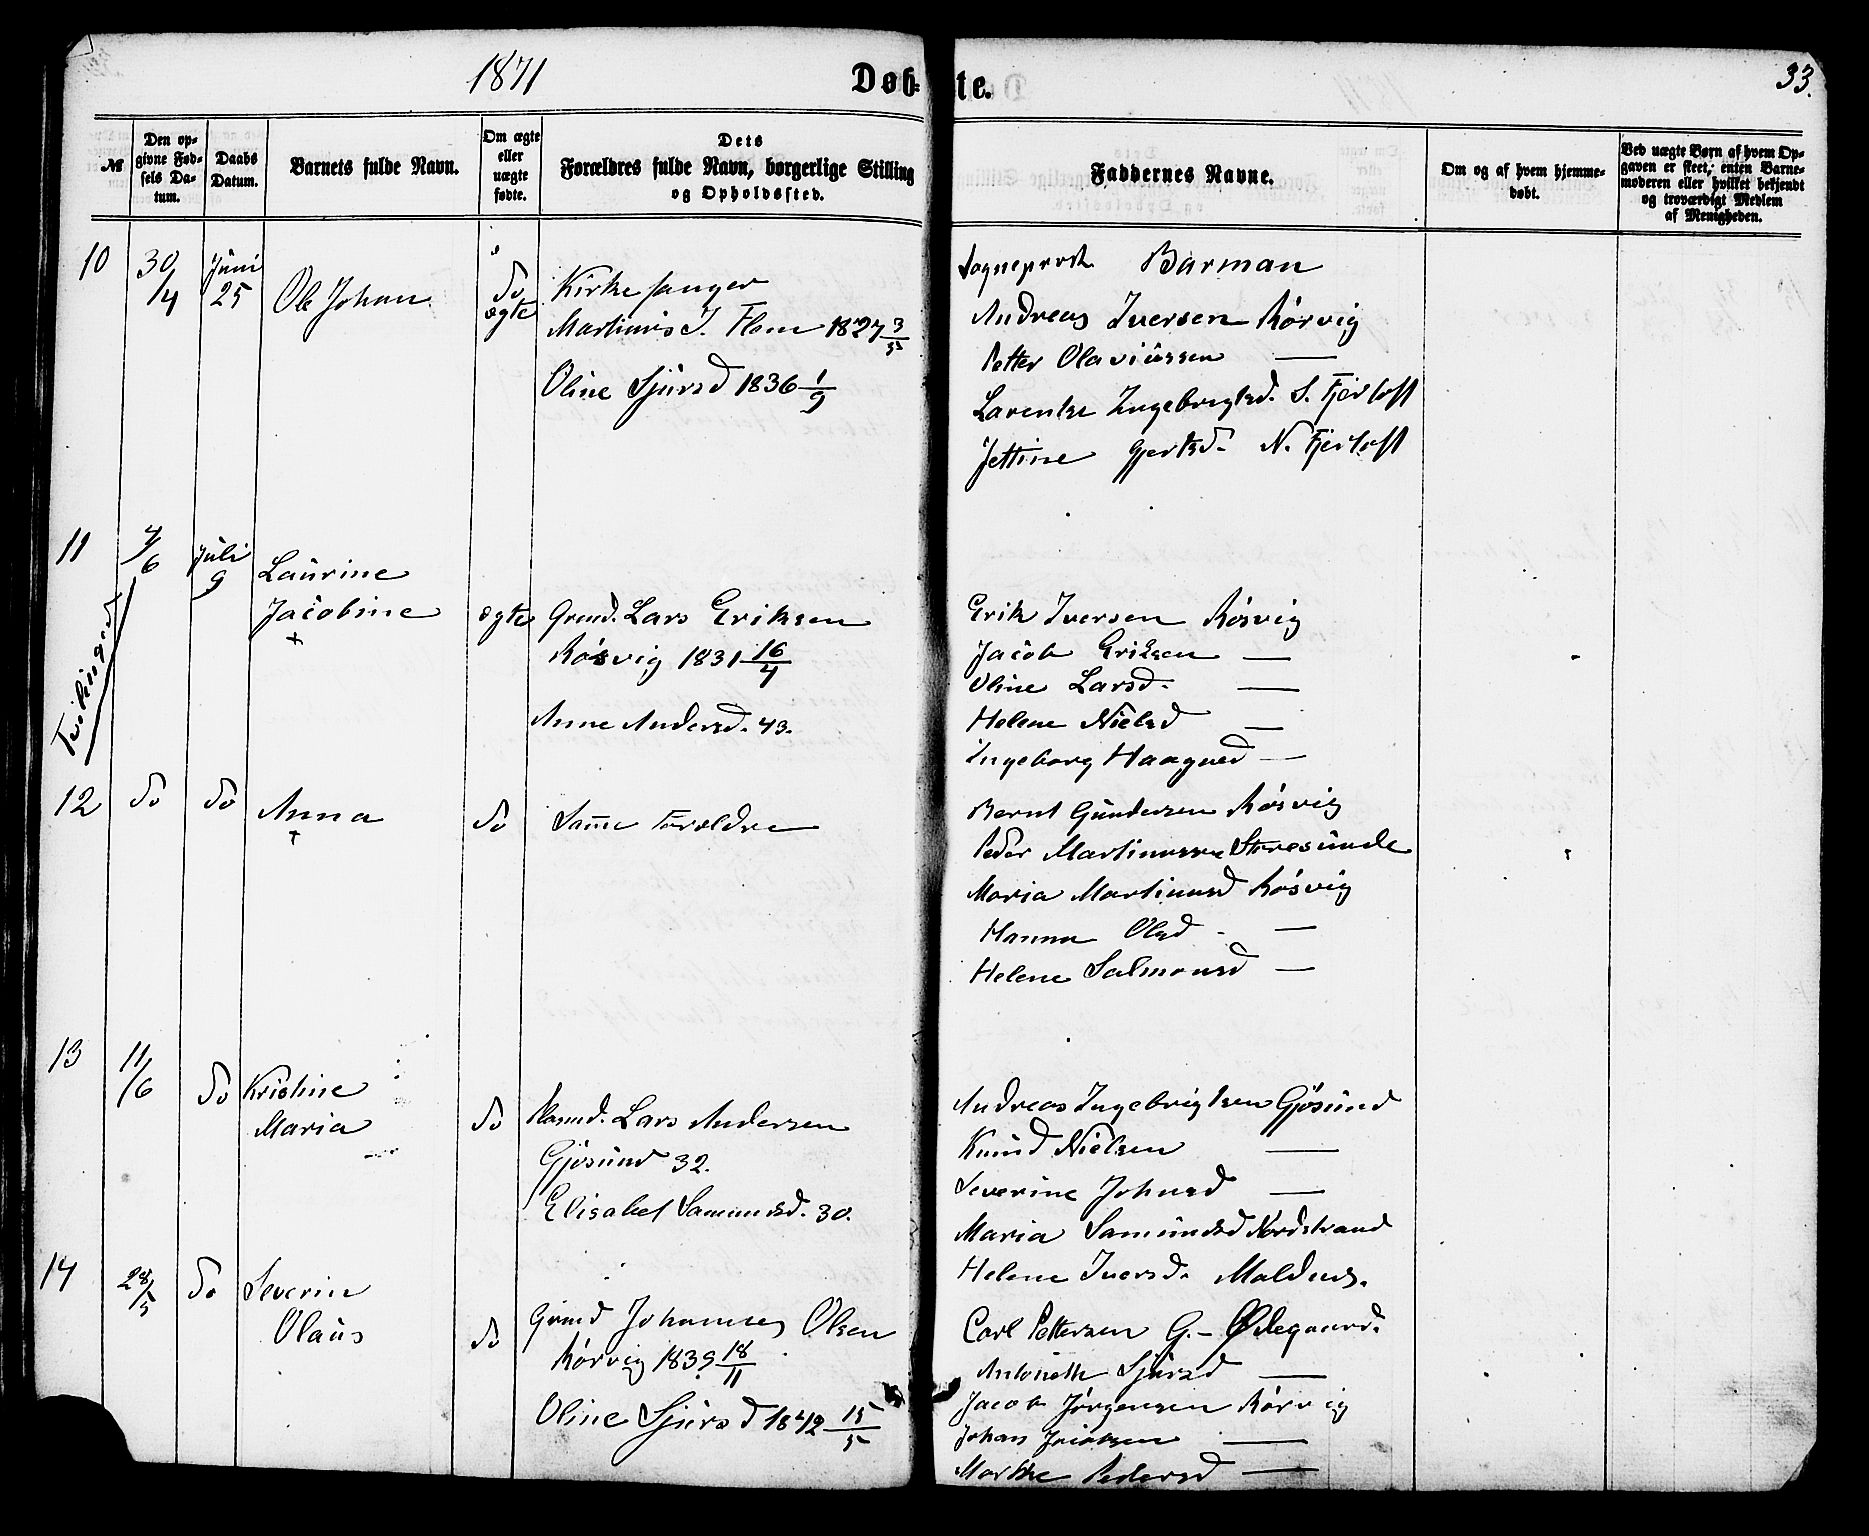 1871 Døbte. 33.
№
Den opgivne Fødsels Datum.
Daabs Datum.
Barnets fulde Navn.
Om ægte eller uægte fødte.
Dets Forældres fulde Navn, borgerlige Stilling og Opholdssted.
Faddernes Navne.
Om og af hvem hjemmedøbt.
Ved uægte Børn af hvem Opgaven er skeet; enten Barnemoderen eller hvilket bekjendt og troværdigt Medlem af Menigheden.
10 30/4 Juni 25 Ole Johan do ægte
Kirkesanger
Martinus J. Flem 1827 3/5
Oline Sjursd 1836 1/9
Sogneprest Barman
Andreas Iversen Rörvig
Petter Olaviussen —
Larentse Ingebregtsd. S. Fjertoft
Jettine Gjertsd. N. Fjertoft
Tvillinger
11 4/6 Juli 9 Laurine
Jacobine ægte
+
Grmd. Lars Eriksen
Rösvig 1831 16/4
Anne Andersd. 43.
Erik Iversen Rösvig
Jacob Eriksen —
Oline Larsd. —
Helene Nielsd —
Ingeborg Haagnsd —
12 do do Anna do Samme Forældre
+
Bernt Gundersen Rösvig
Peder Martinussen Storesunde
Maria Martinusd Rösvig
Hanna Olsd. —
Helene Salmonsd —
13 11/6 do Kristine
Maria do
Huusmd. Lars Andersen
Gjösund 32.
Elisabet Samundsd. 30.
Andreas Ingebrigtsen Gjösund
Knud Nielsen —
Severine Johnsd —
Maria Samundsd Nordstrand
Helene Iversd. Moldnes.
14 28/5 do Severin
Olaus do
Grmd Johannes Olsen
Rörvig 1839 18/11
Oline Sjursd 1842 15/5
Carl Pettersen G.- Ødegaard.
Antonette Sjursd —
Jacob Jörgensen Rörvig
Johan Jacobsen —
Marthe Pedersd —